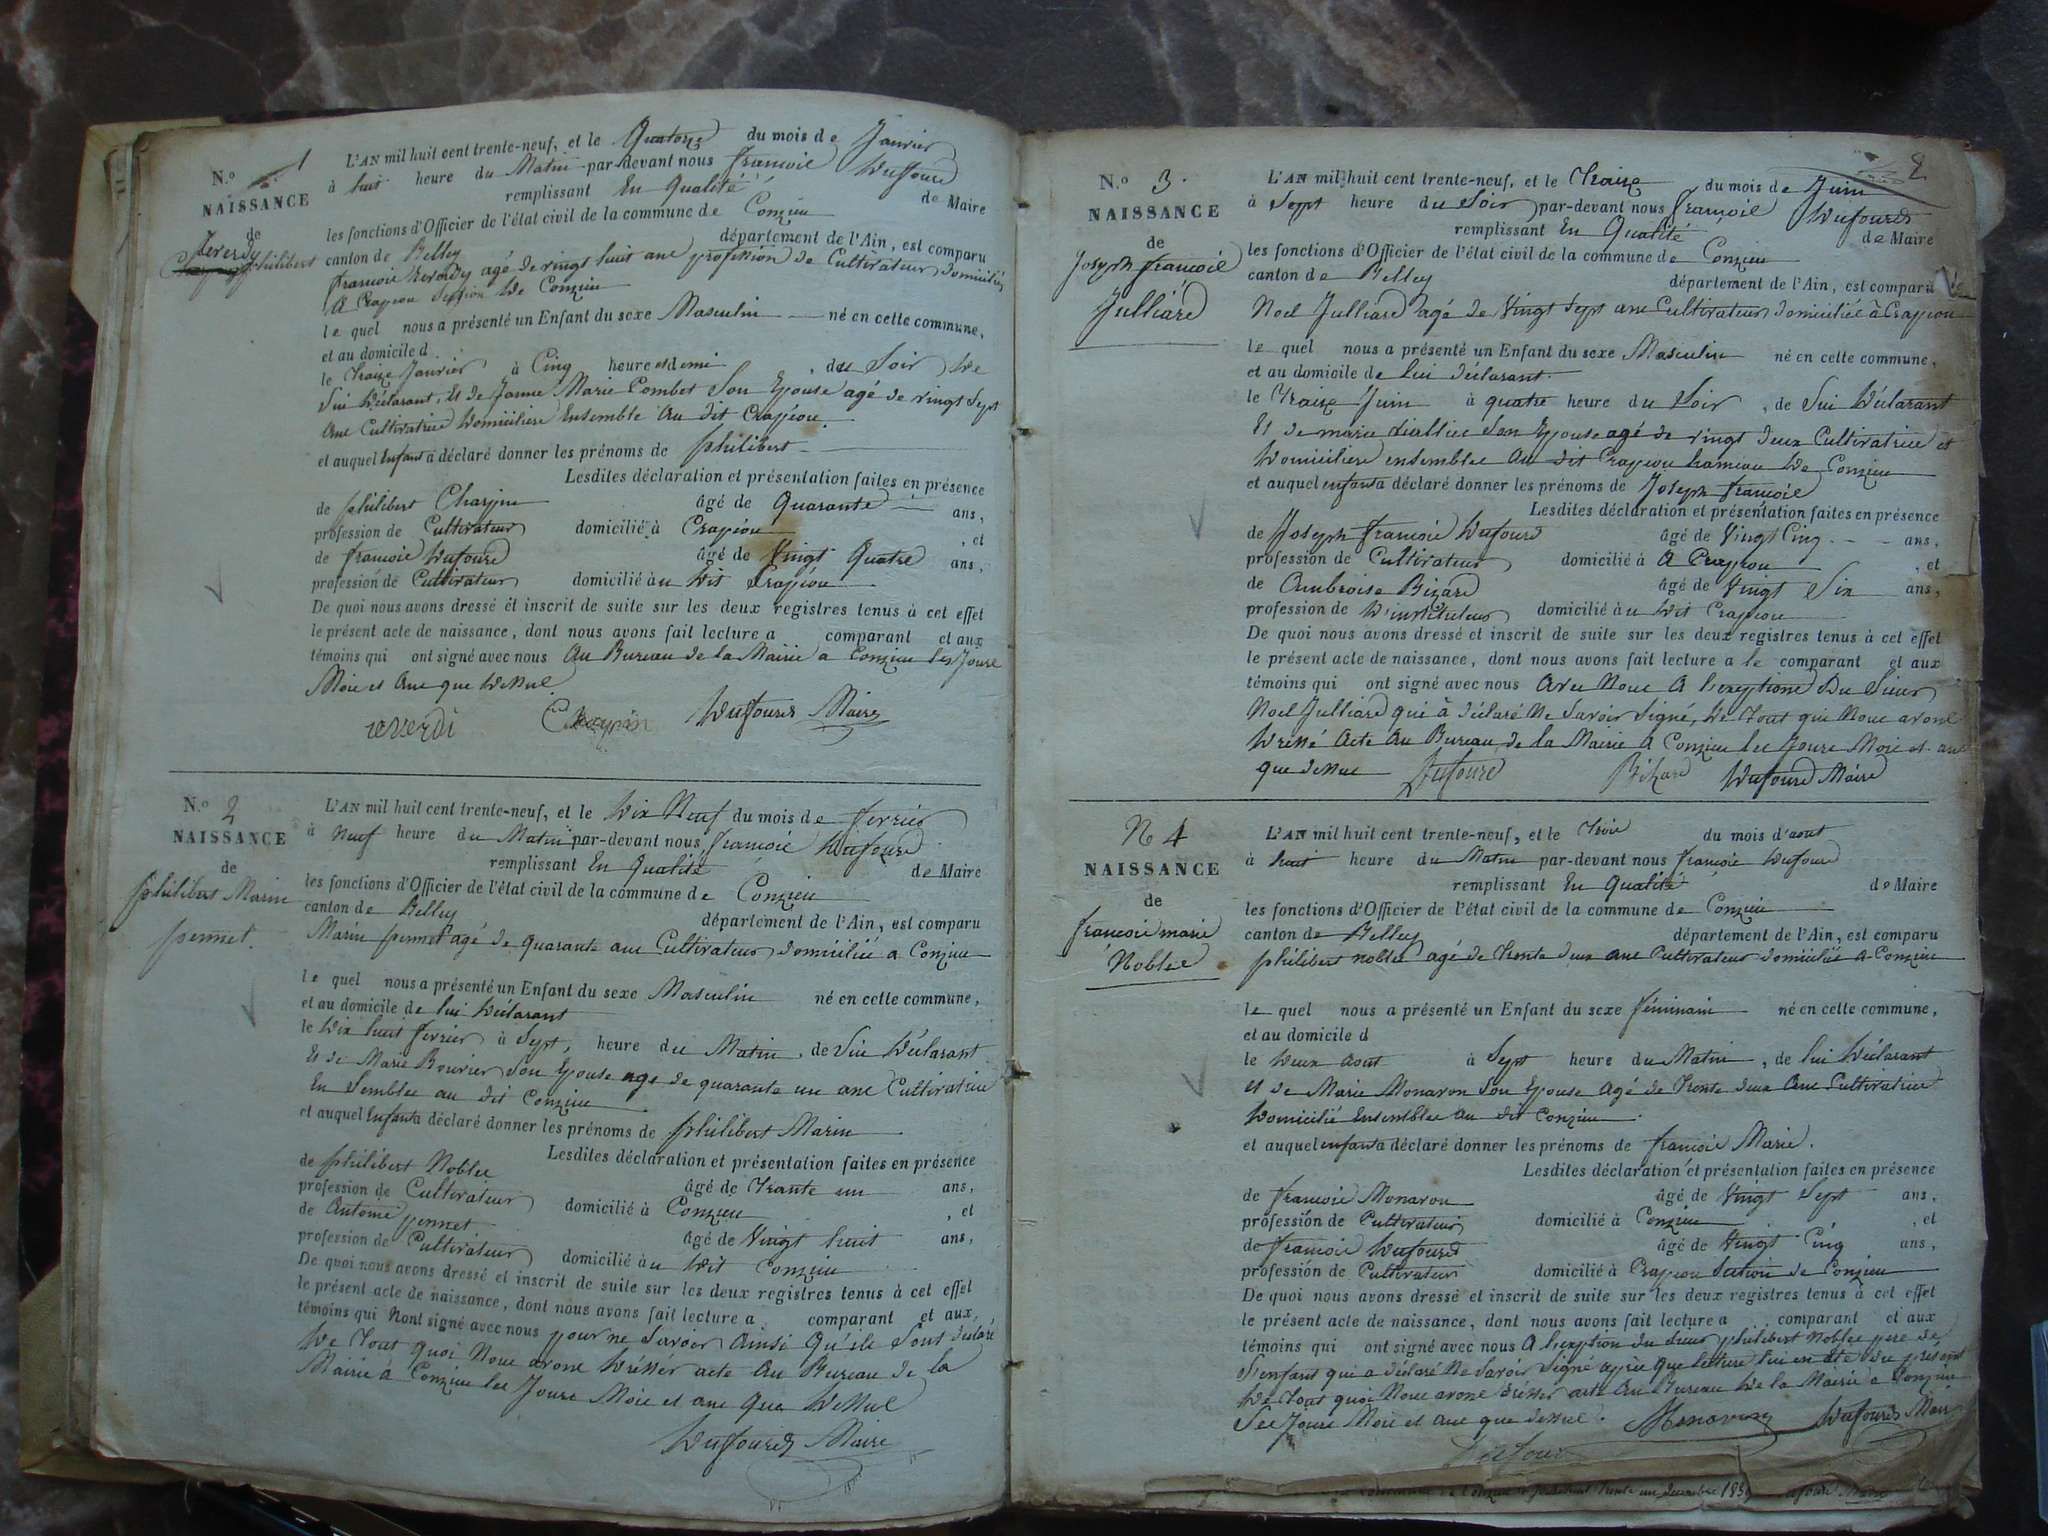 N.º 1
NAISSANCE
de
Reverdy
philibert
L'AN mil huit cent trente-neuf, et le Quatorze du mois de Janvier
à huit heure du Matin par-devant nous françois Dufourd
remplissant En Qualité de Maire
les fonctions d'Officier de l'état civil de la commune de Conzieu
canton de Belley département de l'Ain, est comparu
françois Reverdy agé de vingt huit ans profession de Cultivateur domicilié
A Crapeou Section De Conzieu
le quel nous a présenté un Enfant du sexe Masculin né en cette commune,
et au domicile d
le Traize Janvier à Cinq heure et demi du Soir De
Lui Déclarant, Et de Jeanne Marie Combet Son Epouse agé de vingt Sept
Ans Cultivatrice Domiciliere Ensemble Au dit Crapeou
et auquel Enfant a déclaré donner les prénoms de philibert
Lesdites déclaration et présentation faites en présence
de philibert âgé de Quarante ans,
profession de Cultivateur domicilié à Crapeou , et
de francois Dufourd âgé de Vingt Quatre ans,
profession de Cultivateur domicilié au Dit Crapeou
De quoi nous avons dressé et inscrit de suite sur les deux registres tenus à cet effet
le présent acte de naissance, dont nous avons fait lecture a comparant et aux
témoins qui ont signé avec nous Au Bureau de la Mairie a Conzieu les Jours
Mois et Ans que Dessus
reverdi Dufourd Maire
N.º 2
NAISSANCE
de
philibert Marin
pennet.
L'AN mil huit cent trente-neuf, et le Dix Neuf du mois de fevrier
à Neuf heure du Matin par-devant nous françois Dufourd
remplissant En Qualité de Maire
les fonctions d'Officier de l'état civil de la commune de Conzieu
canton de Belley département de l'Ain, est comparu
Marin pennet agé de quarante ans Cultivateur domicilié a Conzieu
le quel nous a présenté un Enfant du sexe Masculin né en cette commune,
et au domicile de lui Déclarant
le Dix huit fevrier à Sept, heure du Matin, de Lui Déclarant
Et de Marie Bouvier Son Epouse age de quarante un ans Cultivatrice
En Semblee au dit Conzieu
et auquel Enfant a déclaré donner les prénoms de philibert Marin
Lesdites déclaration et présentation faites en présence
de philibert Noblee âgé de Trante un ans,
profession de Cultivateur domicilié à Conzieu , et
de Antoine pennet âgé de Vingt huit ans,
profession de Cultivateur domicilié au Dit Conzieu
De quoi nous avons dressé et inscrit de suite sur les deux registres tenus à cet effet
le présent acte de naissance, dont nous avons fait lecture a comparant et aux
témoins qui Nont signé avec nous pour ne Savoir Ainsi Qu'ils Sont déclaré
De Tout quoi Nous avons Drésser acte Au Bureau de la
Mairie à Conzieu les Jours Mois et ans Que Dessus
Dufourd Maire
2
N.º 3.
NAISSANCE
de
Joseph françois
Julliard
L'AN mil huit cent trente-neuf, et le Traize du mois de Juin
à Sept heure du Soir par-devant nous françois Dufourd
remplissant En Qualité de Maire
les fonctions d'Officier de l'état civil de la commune de Conzieu
canton de Belley département de l'Ain, est comparu
Noel Julliard agé de Vingt Sept ans Cultivateur domicilié à Crapeou
le quel nous a présenté un Enfant du sexe Masculin né en cette commune,
et au domicile de lui déclarant.
le Traize Juin à quatre heure du Soir, de Lui Déclarant
Et de marie Son Epouse agé de vingt deux Cultivatrice et
Domiciliere ensemblee Au dit Crapeou hameau De Conzieu
et auquel enfant a déclaré donner les prénoms de Joseph françois
Lesdites déclaration et présentation faites en présence
de Joseph francois Dufourd âgé de Vingt Cinq ans,
profession de Cultivateur domicilié à A Crapeou , et
de Ambroise Bizard âgé de Vingt Six ans,
profession de D'instituteur domicilié au Dit Crapeou
De quoi nous avons dressé et inscrit de suite sur les deux registres tenus à cet effet
le présent acte de naissance, dont nous avons fait lecture a le comparant et aux
témoins qui ont signé avec nous Avec Nous A l'exception Du Sieur
Noel Julliard qui à déclaré Ne Savoir Signé, De Tout quoi Nous avons
Dressé Acte Au Bureau de la Mairie a Conzieu les Jours Mois et ans
que dessus Dufourd Bizard Dufourd Maire
N 4
NAISSANCE
de
francois marie
Noblee
L'AN mil huit cent trente-neuf, et le Trois du mois d'aout
à huit heure du Matin par-devant nous françois Dufourd
remplissant En Qualité de Maire
les fonctions d'Officier de l'état civil de la commune de Conzieu
canton de Belley département de l'Ain, est comparu
philibert noblee agé de Trente deux ans Cultivateur domicilié a Conzieu
le quel nous a présenté un Enfant du sexe féminain né en cette commune,
et au domicile d
le Deux Aout à Sept heure du Matin, de lui Déclarant
et de Marie Monavon Son Epouse Agé de Trente deux Ans Cultivatrice
Domicilié Ensemblee Au dit Conzieu
et auquel enfant a déclaré donner les prénoms de francois Marie.
Lesdites déclaration et présentation faites en présence
de francois Monavon âgé de Vingt Sept ans,
profession de Cultivateur domicilié à Conzieu , et
de francois Dufourd âgé de Vingt Cinq ans,
profession de Cultivateur domicilié à Crapeou Section de Conzieu
De quoi nous avons dressé et inscrit de suite sur les deux registres tenus à cet effet
le présent acte de naissance, dont nous avons fait lecture a comparant et aux
témoins qui ont signé avec nous A l'exception du Sieur philibert Noblee pere de
L'enfant qui a déclaré Ne Savoir Signé après que lecture lui en été du présent
De Tout quoi Nous avons drésser acte Au Bureau De la Mairie a Conzieu
Les Jours Mois et ans que dessus. Monavon Dufourd Maire
Dufour
Conzieu Trente un decembre 1839 Maire